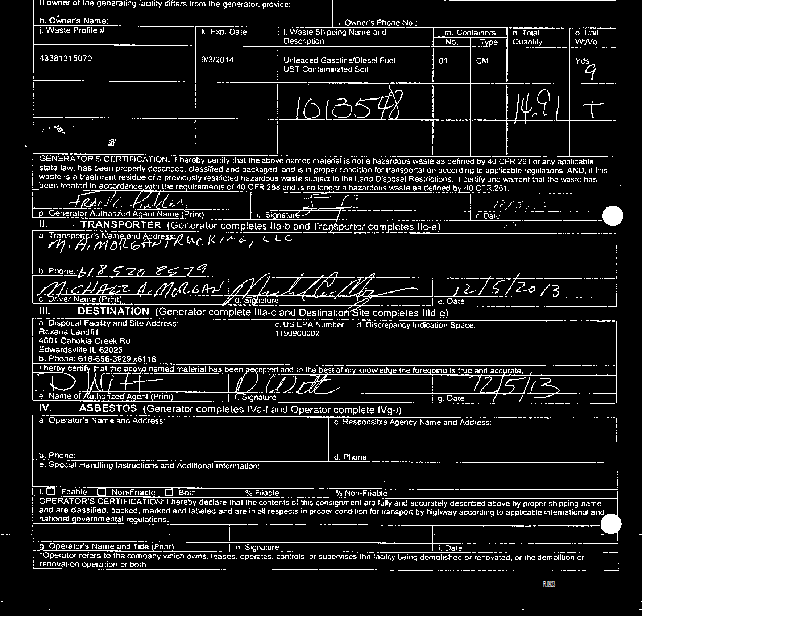 If owner of the generating facility differs from the generator, provide:
h. Owner's Name: i. Owner's Phone No.:
j. Waste Profile # k. Exp. Date l. Waste Shipping Name and Description m. Containers n. Total Quantity o. Unit Wt/Vol
No. Type
43381215070 9/3/2014 Unleaded Gasoline/Diesel Fuel UST Contaminated Soil 01 CM Yds 9
1013548 14.91 T
GENERATOR'S CERTIFICATION: I hereby certify that the above named material is not a hazardous waste as defined by 40 CFR 261 or any applicable
state law, has been properly described, classified and packaged, and is in proper condition for transportation according to applicable regulations. AND, if this
waste is a treatment residue of a previously restricted hazardous waste subject to the Land Disposal Restrictions. I certify and warrant that the waste has
been treated in accordance with the requirements of 40 CFR 268 and is no longer a hazardous waste as defined by 40 CFR 261.
p. Generator Authorized Agent Name (Print) q. Signature r. Date
II. TRANSPORTER (Generator completes IIa-b and Transporter completes IIc-e)
a. Transporter's Name and Address:
M. A. MORGAN TRUCKING, LLC
b. Phone: 618 520 8579
MICHAEL A. MORGAN 12/5/2013
c. Driver Name (Print) d. Signature e. Date
III. DESTINATION (Generator complete IIIa-c and Destination Site completes IIId-g)
a. Disposal Facility and Site Address: c. US EPA Number d. Discrepancy Indication Space:
Roxana Landfill
4601 Cahokia Creek Rd
Edwardsville IL 62025
b. Phone: 618-656-3929 x6116
I hereby certify that the above named material has been accepted and to the best of my knowledge the foregoing is true and accurate.
D Witt D Witt 12/5/13
e. Name of Authorized Agent (Print) f. Signature g. Date
IV. ASBESTOS (Generator completes IVa-f and Operator complete IVg-i)
a. Operator's Name and Address: c. Responsible Agency Name and Address:
b. Phone: d. Phone
e. Special Handling Instructions and Additional Information:
f. Friable Non-Friable Both % Friable % Non-Friable
OPERATOR'S CERTIFICATION: I hereby declare that the contents of this consignment are fully and accurately described above by proper shipping name
and are classified, packed, marked and labeled and are in all respects in proper condition for transport by highway according to applicable international and
national governmental regulations.
g. Operator's Name and Title (Print) h. Signature i. Date
*Operator refers to the company which owns, leases, operates, controls, or supervises the facility being demolished or renovated, or the demolition or
renovation operation or both